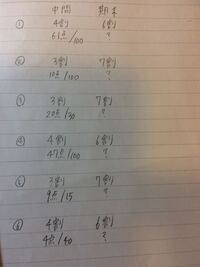 中間 期末
① 4割 6割
61点/100 ?
② 3割 7割
10点/100 ?
③ 3割 7割
20点/30 ?
④ 4割 6割
47点/100 ?
⑤ 3割 7割
9点/15 ?
⑥ 4割 6割
4点/40 ?